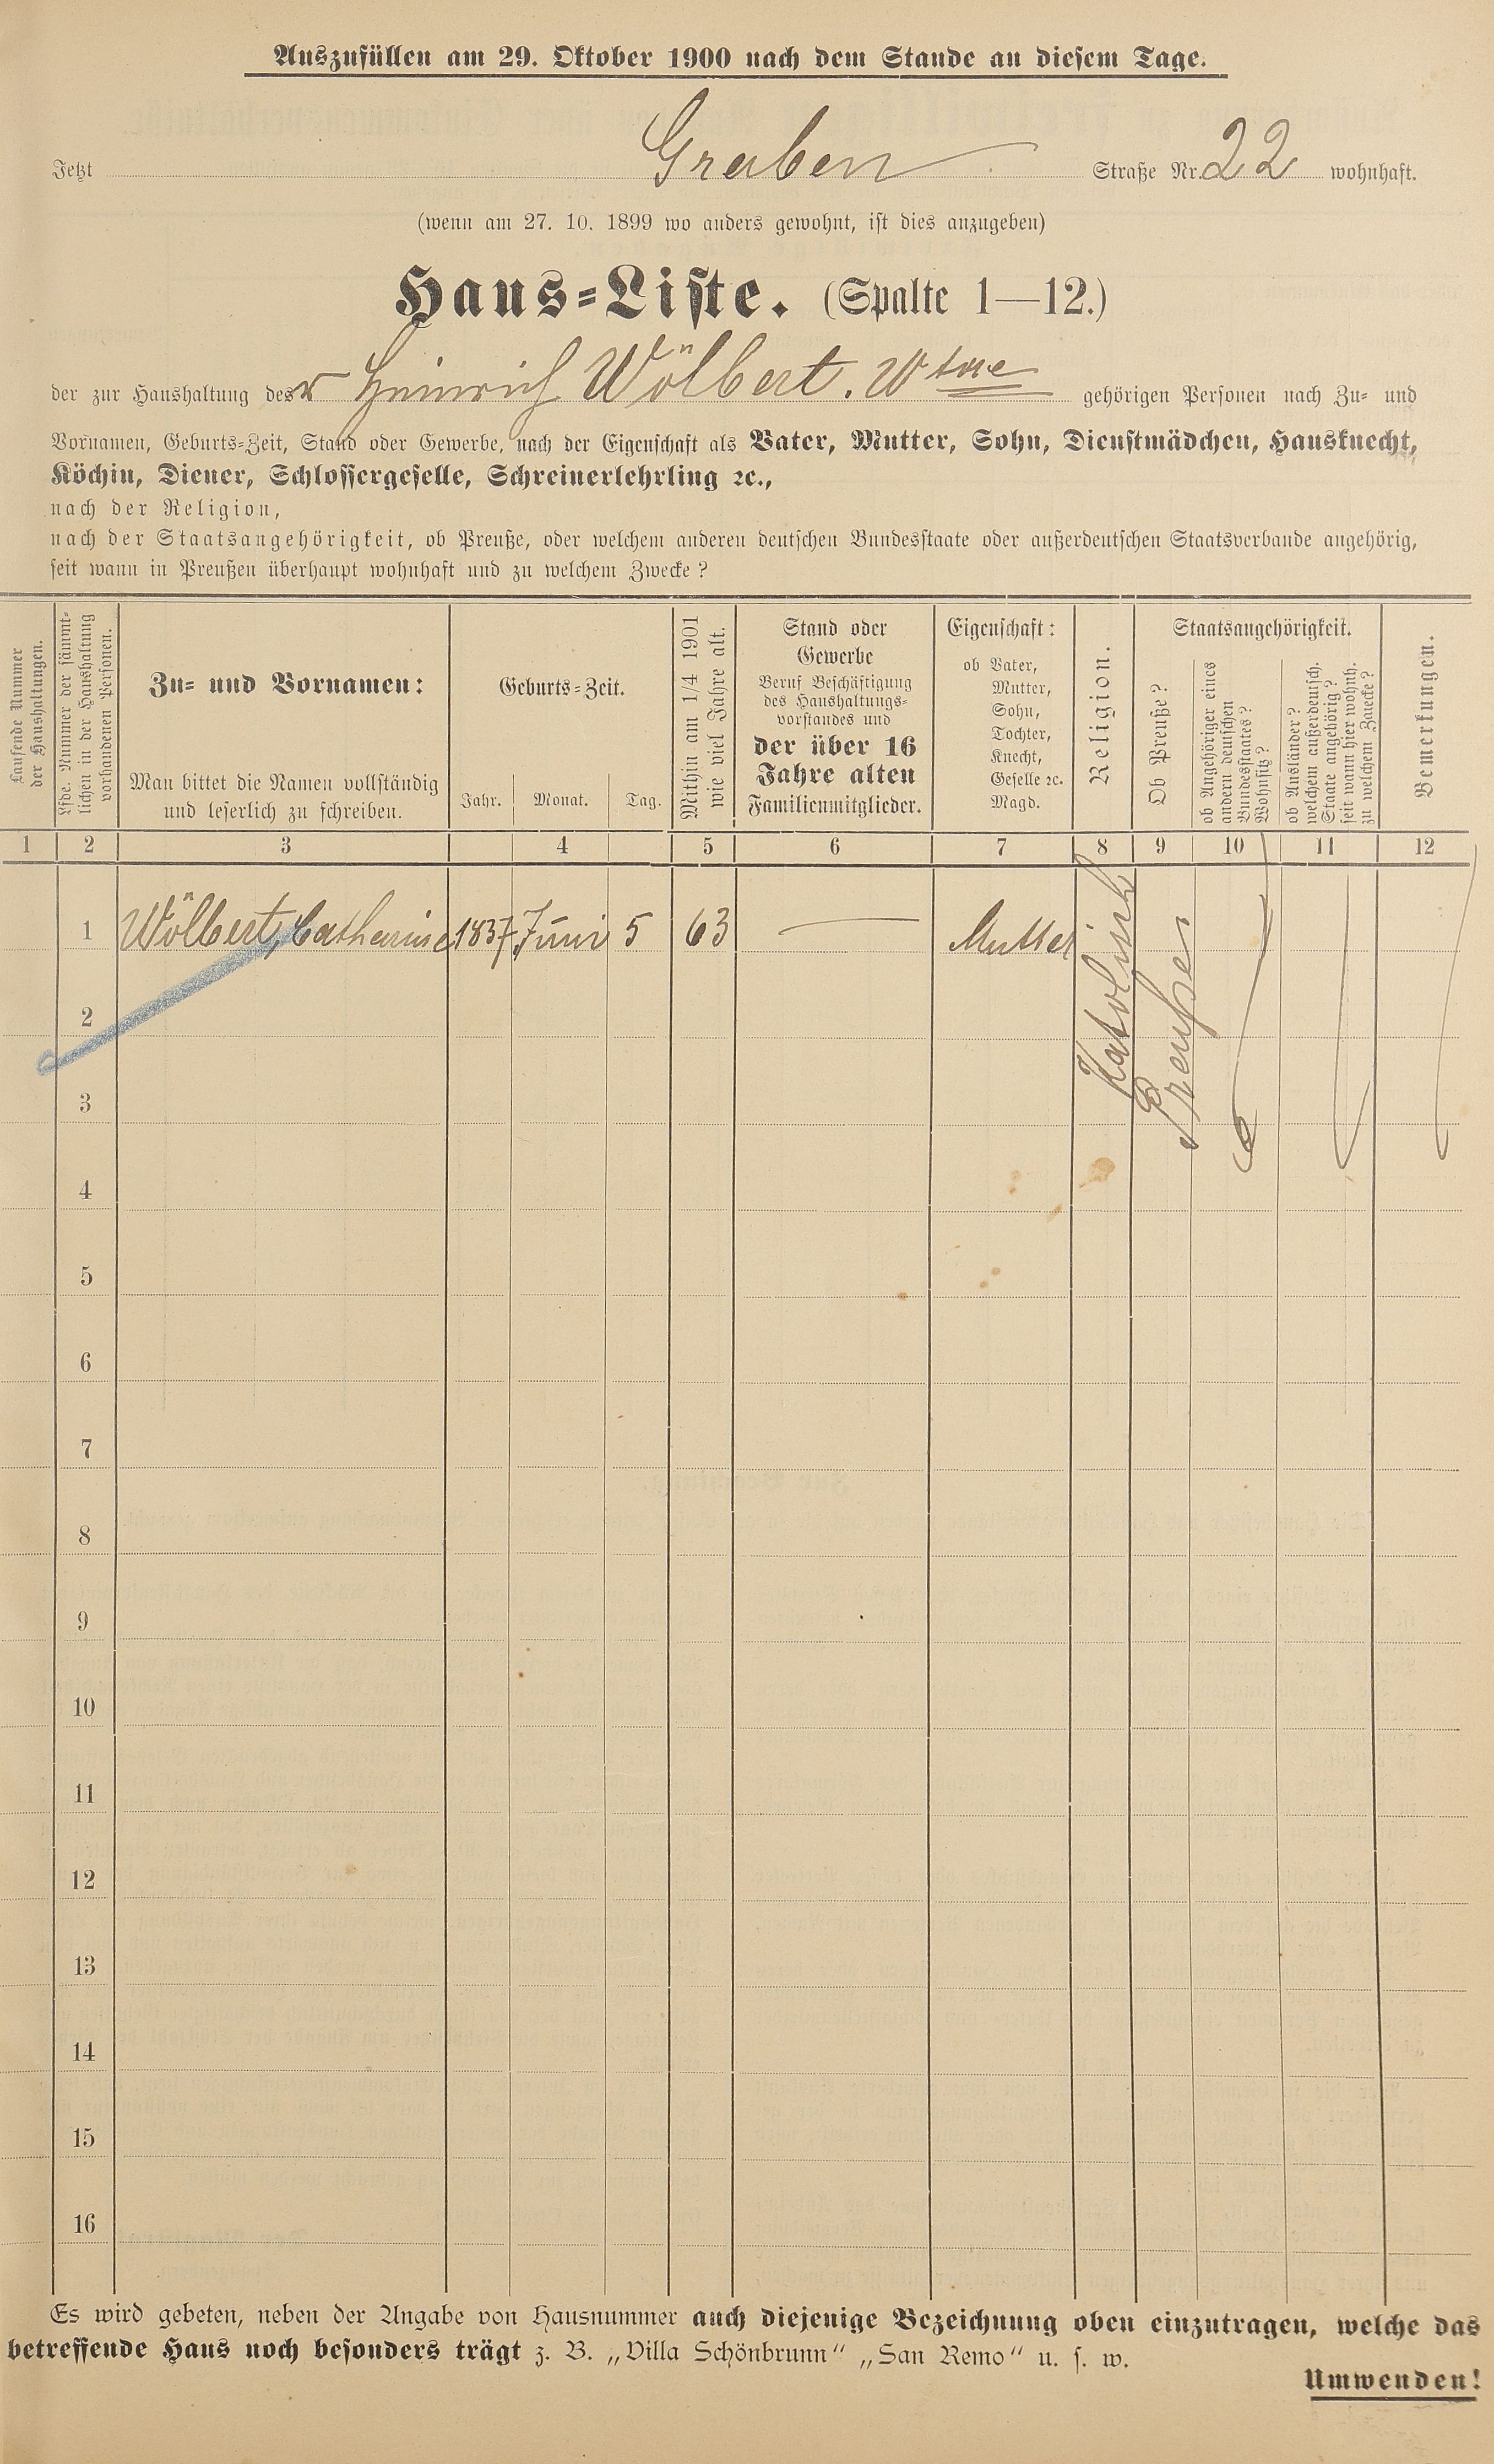 Auszufüllen am 29. Oktober 1900 nach dem Stande an diesem Tage.
Jetzt Graben Straße Nr. 22 wohnhaft.
(wenn am 27. 10. 1899 wo anders gewohnt, ist dies anzugeben)
Haus-Liste. (Spalte 1—12.)
der zur Haushaltung des r Heinrich Wölbert. Wtwe gehörigen Personen nach Zu- und
Vornamen, Geburts-Zeit, Stand oder Gewerbe, nach der Eigenschaft als Vater, Mutter, Sohn, Dienstmädchen, Hausknecht,
Köchin, Diener, Schlossergeselle, Schreinerlehrling ꝛc.,
nach der Religion,
nach der Staatsangehörigkeit, ob Preuße, oder welchem anderen deutschen Bundesstaate oder außerdeutschen Staatsverbande angehörig,
seit wann in Preußen überhaupt wohnhaft und zu welchem Zwecke?
Laufende Nummer
der Haushaltungen.
Lfde. Nummer der sämmt-
lichen in der Haushaltung
vorhandenen Personen.
Zu- und Vornamen:
Man bittet die Namen vollständig
und leserlich zu schreiben.
Geburts-Zeit.
Jahr. Monat. Tag.
Mithin am 1/4 1901
wie viel Jahre alt.
Stand oder
Gewerbe
Beruf Beschäftigung
des Haushaltungs-
vorstandes und
der über 16
Jahre alten
Familienmitglieder.
Eigenschaft:
ob Vater,
Mutter,
Sohn,
Tochter,
Knecht,
Geselle ꝛc.
Magd.
Religion.
Staatsangehörigkeit.
Ob Preuße?
ob Angehöriger eines
andern deutschen
Bundesstaates?
Wohnsitz?
ob Ausländer?
welchem außerdeutsch.
Staate angehörig?
seit wann hier wohnh.
zu welchem Zwecke?
Bemerkungen.
1 2 3 4 5 6 7 8 9 10 11 12
1 Wölbert, Catharine 1837 Juni 5 63 — Mutter Katolisch Preußen
2
3
4
5
6
7
8
9
10
11
12
13
14
15
16
Es wird gebeten, neben der Angabe von Hausnummer auch diejenige Bezeichnung oben einzutragen, welche das
betreffende Haus noch besonders trägt z. B. „Villa Schönbrunn“ „San Remo“ u. s. w.
Umwenden!